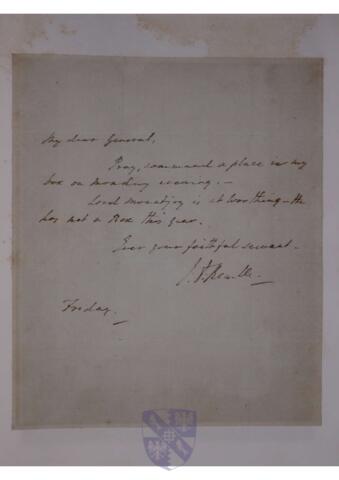 My dear General,
Pray, command a place in my
box on Monday evening. —
Lord Mountjoy is at Worthing – He
has not a Box this year.
Ever your faithful servant.
Friday.